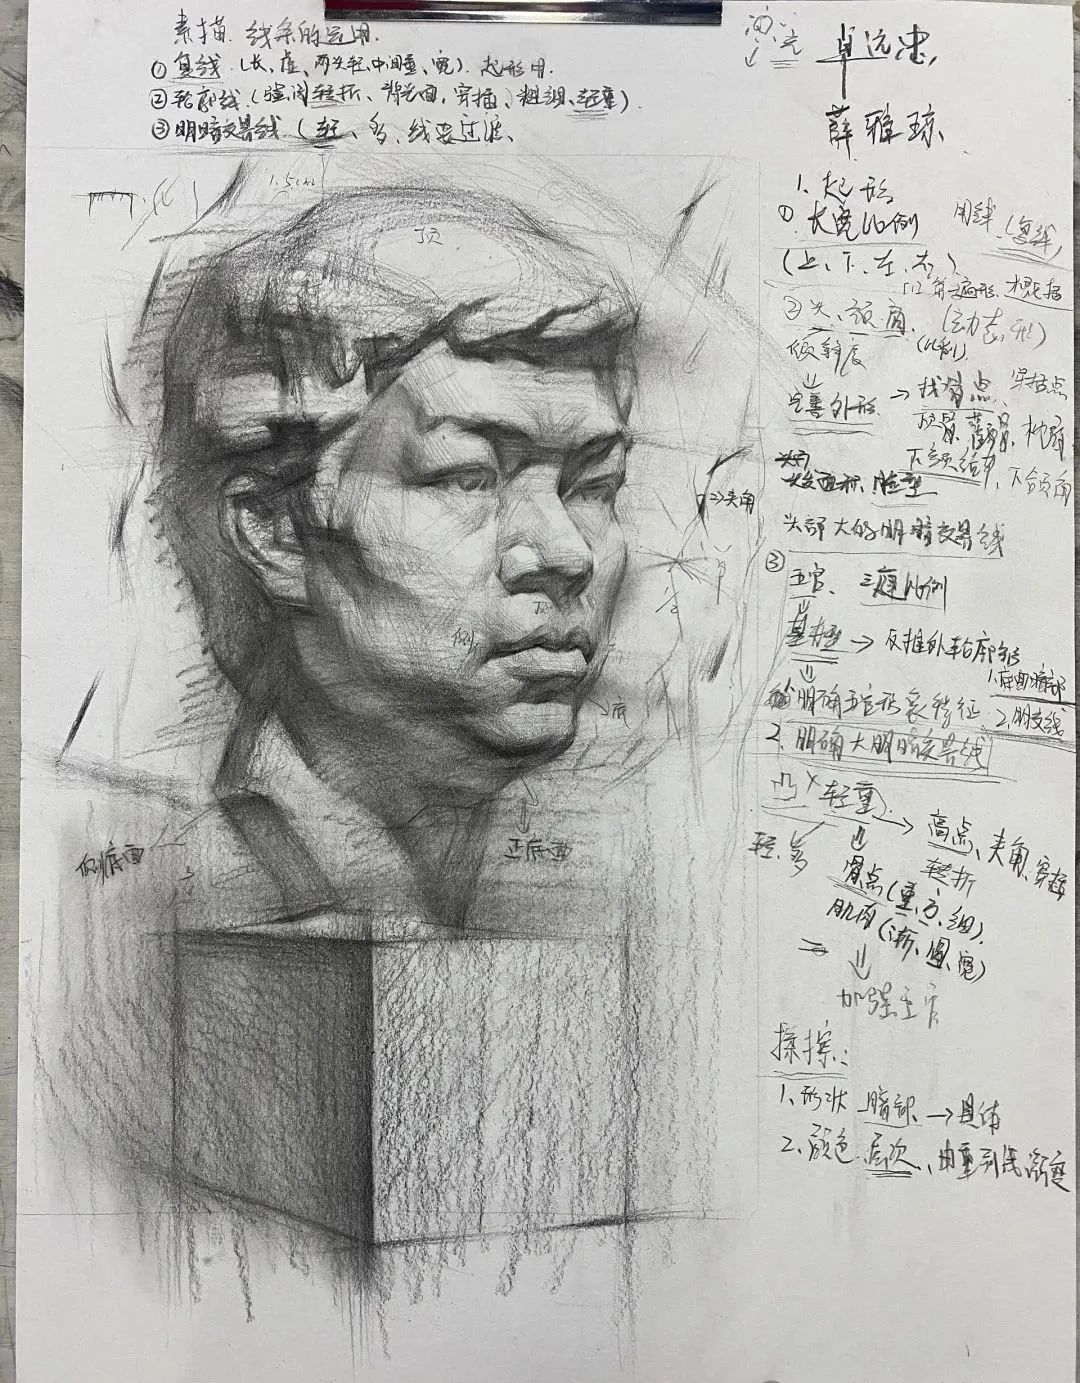 素描.线条的运用.
①复线.(长、虚、两头轻中间重、宽).起形用.
②轮廓线.(强调转折、背光面,穿插、粗细、轻重).
③明暗交界线(轻、多、线要过渡、
卓沅忠,
薛雅琼.
1.5cm
顶
1. 起形
① 长宽比例 用线.(复线)
(上、下、左、右)
概括
②头、颈、肩. (动态,形)
倾斜度 (比例).
完善外形 → 找骨点. 穿插点
顶骨、颧骨、枕骨
下颏结节、下颌角
头发面积、脸型
夹角
头部大的明暗交界线
③五官、三庭比例
基本型 → 反推外轮廓形
明确五官形象特征
1.底面暗部
2.明交线
2.明确大明暗交界线
轻重
轻.多
→ 高点、夹角、穿插
转折
骨点(重、方、细).
肌肉(渐、圆、宽)
加强五官
顶
侧
底
侧底面
正底面
揉擦:
1、形状 暗部 → 具体
2、颜色.层次、由重到浅渐变